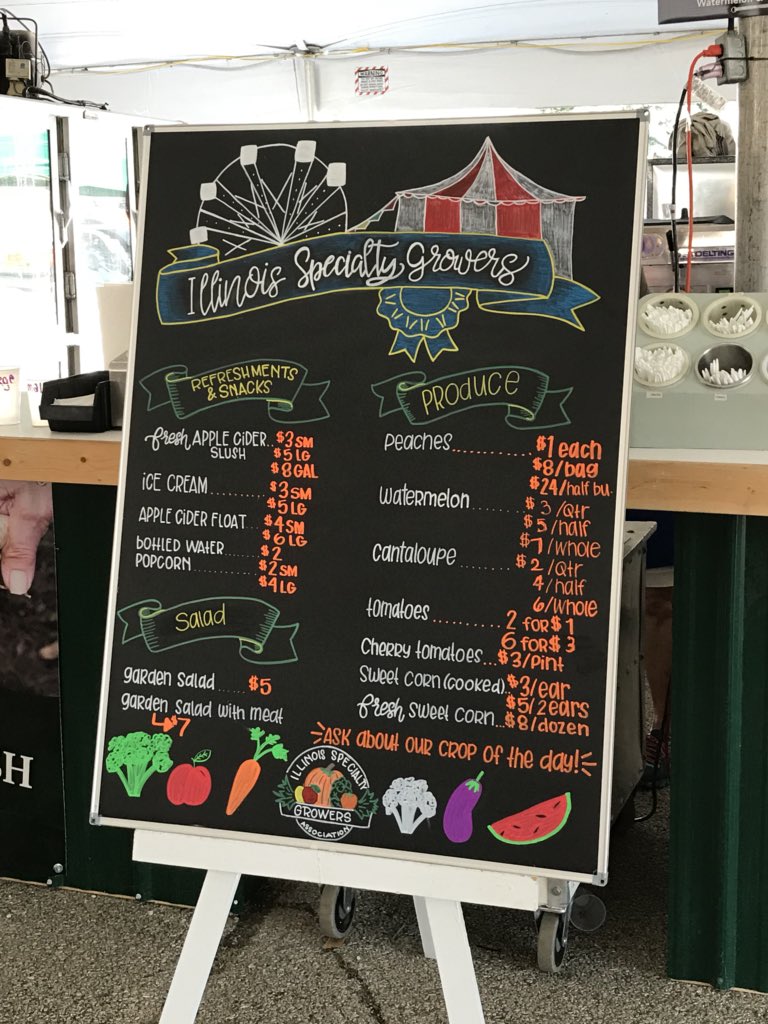 Watermelon
WARNING
DELTING
Illinois Specialty Growers
REFRESHMENTS
& SNACKS
fresh APPLE CIDER.. $3 SM
SLUSH $5 LG
$8 GAL
ICE CREAM .......... $3 SM
$5 LG
APPLE CIDER FLOAT ... $4 SM
$6 LG
BOTTLED WATER ..... $2
POPCORN ........... $2 SM
$4 LG
Salad
garden salad ..... $5
garden salad with meat
$7
PRODUCE
Peaches ............ $1 each
$8/bag
$24/half bu.
watermelon ....... $3/Qtr
$5/half
$7/whole
cantaloupe ........ $2/Qtr
4/half
6/whole
tomatoes .......... 2 for $1
6 for $3
Cherry tomatoes... $3/Pint
Sweet Corn (cooked). $3/ear
$5/2 ears
fresh Sweet Corn ... $8/dozen
ASK about our crop of the day!
ILLINOIS SPECIALTY
GROWERS
ASSOCIATION
SH